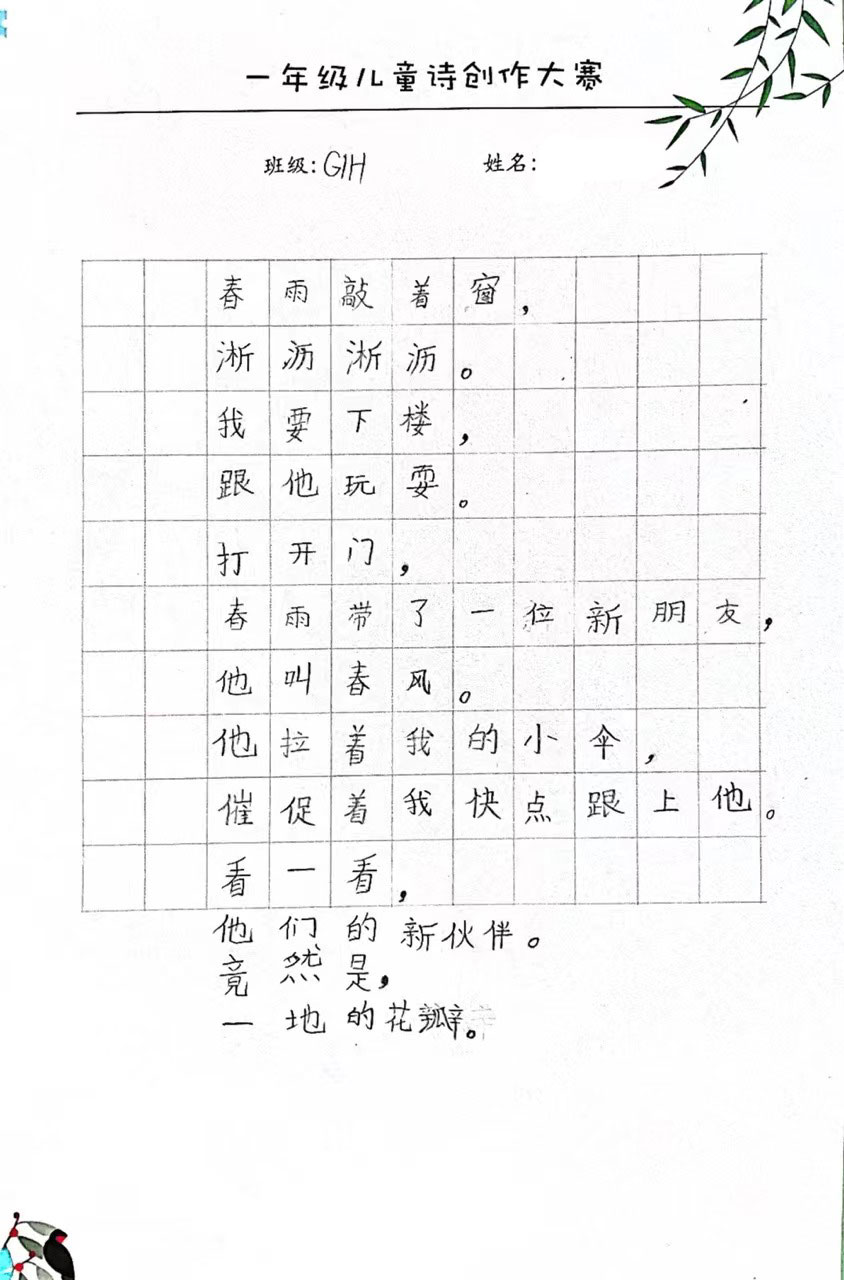 一年级儿童诗创作大赛
班级: G1H 姓名:
春雨敲着窗,
淅沥淅沥。
我要下楼,
跟他玩耍。
打开门,
春雨带了一位新朋友,
他叫春风。
他拉着我的小伞,
催促着我快点跟上他。
看一看,
他们的新伙伴。
竟然是,
一地的花瓣。